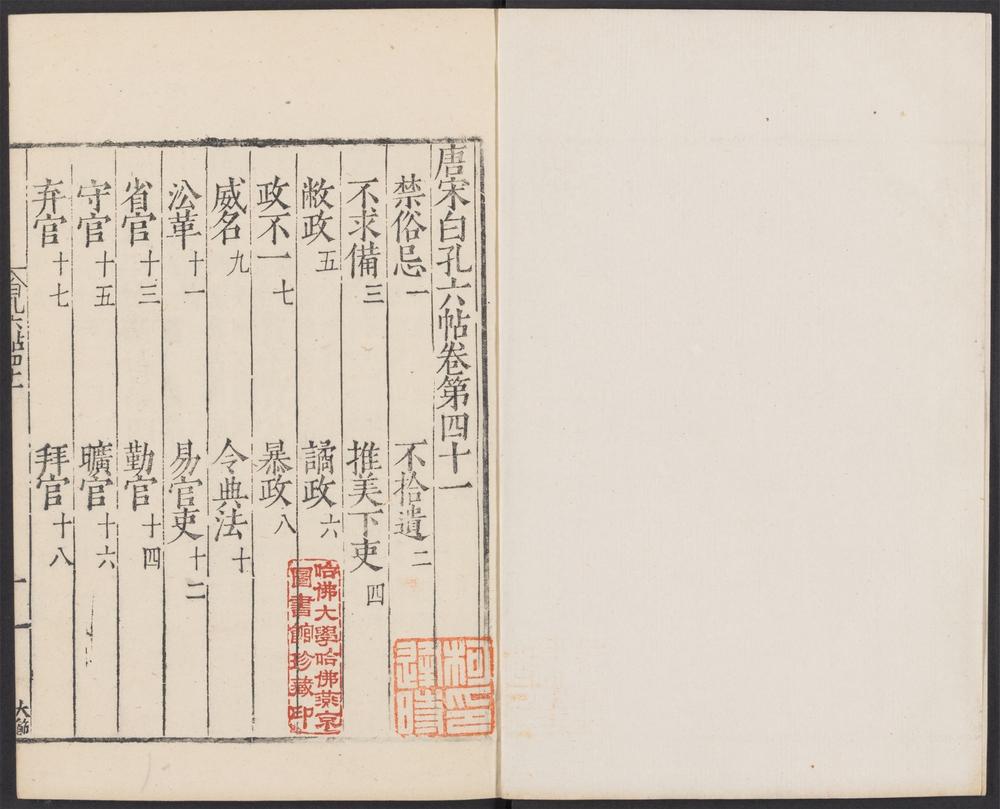 唐宋白孔六帖卷第四十一
禁俗忌一 不拾遺二
不求備三 推美下吏四
敝政五 譎政六
政不一七 暴政八
威名九 令典法十
㳂革十一 易官吏十二
省官十三 勤官十四
守官十五 曠官十六
弃官十七 拜官十八
哈佛大學哈佛燕京
圖書館珍藏印